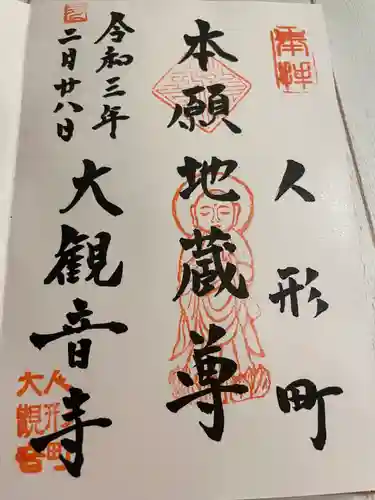 奉拝
人形町
本願地蔵尊
令和三年
二月廿八日
大観音寺
人形町
大観音